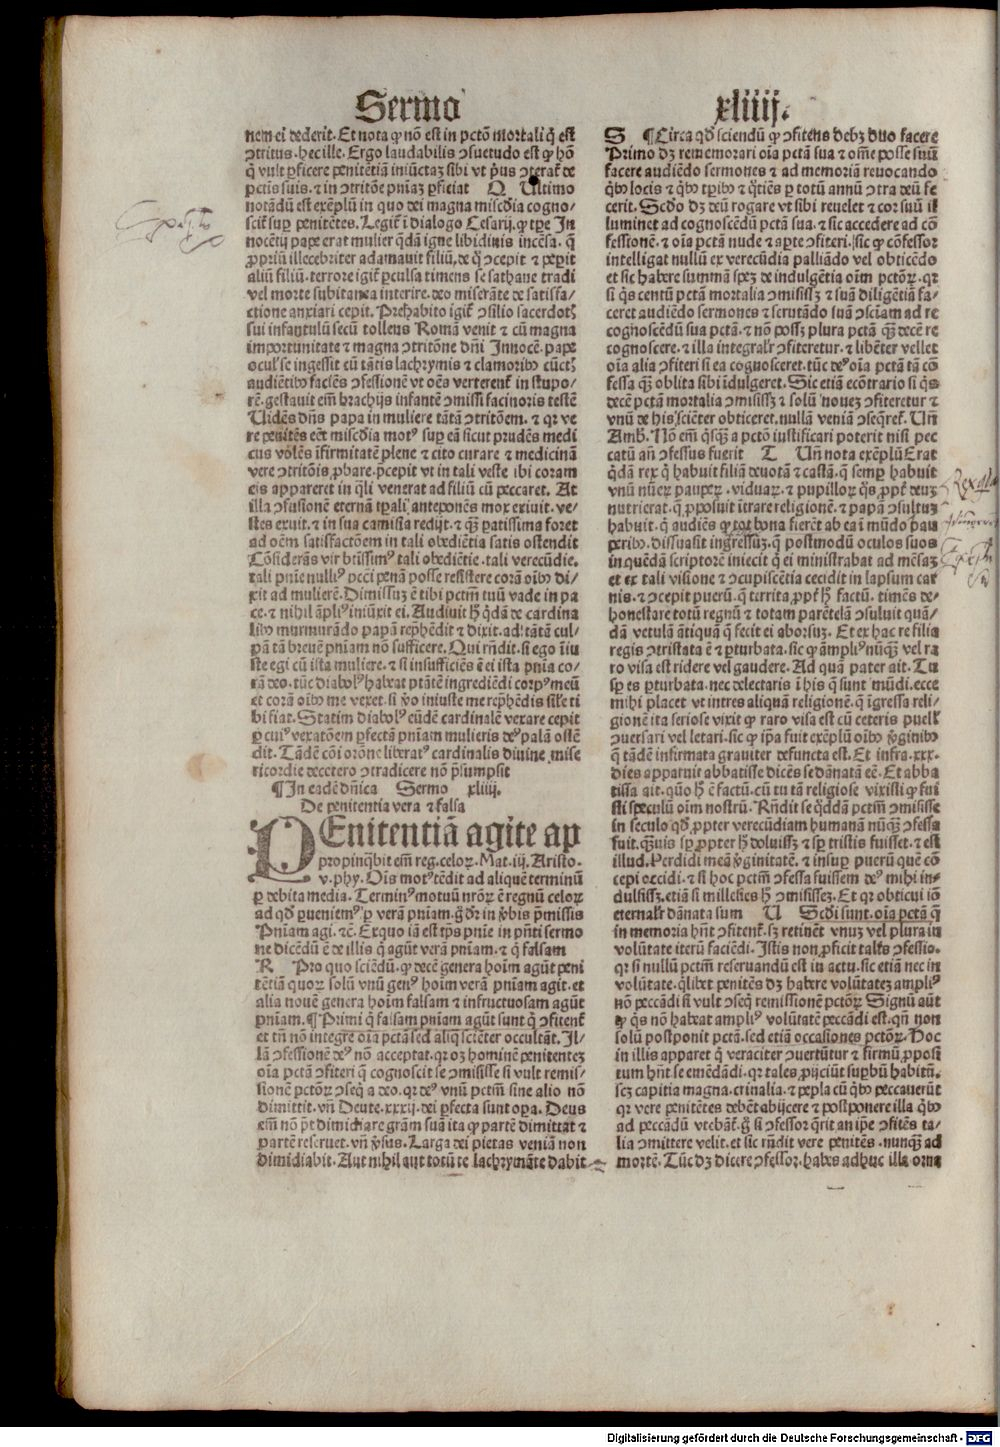 Sermo
nem ei dederit. Et nota ꝙ nō est in pctō mortali q̄ est
ꝯtritus. hec ille. Ergo laudabilis ꝯsuetudo est ꝙ hō
q̄ vult ꝑficere penitētiā iniūctaꝫ sibi vt pꝰus ꝯteratᷣ de
pctis suis. ⁊ in ꝯtritōne pniaꝫ ꝑficiat Q Ultimo
notādū est exēplū in quo dei magna miscdia cogno/
scitᷣ suꝑ penitētes. Legitᷣ ī dialogo Cesarij. ꝙ tꝑe In
nocētij pape erat mulier q̄dā igne libidinis incēsa. q̄
ꝓpriū illecebriter adamauit filiū. de q̄ ꝯcepit ⁊ peperit
aliū filiū. terrore igitᷣ ꝑculsa timens se sathane tradi
vel morte subitanea interire. deo miserāte de satisfa/
ctione anxiari cepit. Prehabito igitᷣ ꝯsilio sacerdotꝭ
sui infantulū secū tollens Romā venit ⁊ cū magna
importunitate ⁊ magna ꝯtritōne dn̄i Innocē. pape
oculꝭ se ingessit cū tātis lachrymis ⁊ clamoribꝰ cūctꝭ
audiētibꝰ faciēs ꝯfessionē vt oēs verterentᷣ in stupo/
rē. gestauit em̄ brachijs infantē ꝯmissi facinoris testē
Uidēs dn̄s papa in muliere tātā ꝯtritōem. ⁊ qꝛ ve
re penitēs eēt miscdia motꝰ suꝑ eā sicut prudēs medi
cus volēs īfirmitatē plene ⁊ cito curare ⁊ medicinā
vere ꝯtritōis ꝓbare. p̄cepit vt in tali veste ibi coram
eis appareret in q̄li venerat ad filiū cū peccaret. At
illa ꝯfusionē eternā tꝑali anteponēs mox exiuit. ve/
stes exuit. ⁊ in sua camisia redijt. ⁊ qꝫ paratissima foret
ad oēm satisfactōem in tali obediētia satis ostendit
Cōsiderās vir btissimꝰ tali obediētie. tali verecūdie.
tali pnie nullꝰ pcci penā posse resistere corā oibꝰ di/
xit ad mulierē. Dimissuꝫ ē tibi pctm̄ tuū vade in pa
ce. ⁊ nihil āplꝰ iniūxit ei. Audiuit hͦ q̄dā de cardina
libꝰ murmurādo papā rep̄hēdit ⁊ dixit. ad tātā cul/
pā tā breuē pniam nō sufficere. Qui rn̄dit. si ego īiu
ste egi cū ista muliere. ⁊ si insufficiēs ē ei ista pnia co/
rā deo. tūc diabolꝰ habeat ptātē ingrediēdi corpꝰ meū
et corā oibꝰ me vexet. si ꝟo iniuste me rep̄hēdis sil̄e ti
bi fiat. Statim diabolꝰ eūdē cardinalē vexare cepit
ꝑ cuiꝰ vexatōem ꝑfectā pniam mulieris deꝰ palā ostē
dit. Tādē cōi orōne liberatꝰ cardinalis diuine mise
ricordie decetero ꝯtradicere nō p̄sumpsit
¶ In eadē dn̄ica Sermo xliiij.
De penitentia vera ⁊ falsa
PEnitentiā agite ap
propinq̄bit em̄ reg. celoꝝ. Mat. iij. Aristo.
v. phy. Oīs motꝰ tēdit ad aliquē terminū
ꝑ debita media. Terminꝰ motuū nr̄oꝝ ē regnū celoꝝ
ad qd̄ ꝑuenimꝰ ꝑ verā pniam. g̊ dr̄ in ꝟbis p̄missis
Pniam agi. ⁊c̄. Exquo iā est tp̄s pnie in pn̄ti sermo
ne dicēdū ē de illis q̄ agūt verā pniam. ⁊ q̄ falsam
R Pro quo sciēdū. ꝙ decē genera hoīm agūt peni
tētiā quoꝝ solū vnū genꝰ hoīm verā pniam agit. et
alia nouē genera hoīm falsam ⁊ infructuosam agūt
pniam. ¶ Primi q̄ falsam pniam agūt sunt q̄ ꝯfitentᷣ
et tn̄ nō integre oīa pctā sed aliq̄ sciēter occultāt. Il/
lā ꝯfessionē deꝰ nō acceptat. qꝛ oꝫ hominē penitenteꝫ
oīa pctā ꝯfiteri q̄ cognoscit se ꝯmisisse si vult remis/
sionē pctōꝝ ꝯseq̄ a deo. qꝛ deꝰ vnū pctm̄ sine alio nō
dimittit. vn̄ Deute. xxxij. dei ꝑfecta sunt oꝑa. Deus
em̄ nō pōt dimidiare gram̄ suā ita ꝙ partē dimittat ⁊
partē reseruet. vn̄ ꝟsus. Larga dei pietas veniā non
dimidiabit. Aut nihil aut totū te lachrymāte dabit
xliiij.
S ¶ Circa qd̄ sciendū ꝙ ꝯfitens debꝫ duo facere
Primo dꝫ rememorari oīa pctā sua ⁊ om̄e posse suū
facere audiēdo sermones ⁊ ad memoriā reuocando
q̄bꝰ locis ⁊ q̄bꝰ tꝑibꝰ ⁊ q̄tiēs ꝑ totū annū ꝯtra deū fe
cerit. Scd̄o dꝫ deū rogare vt sibi reuelet ⁊ cor suū il
luminet ad cognoscēdū pctā sua. ⁊ sic accedere ad cō
fessionē. ⁊ oīa pctā nude ⁊ aꝑte ꝯfiteri. sic ꝙ cōfessor
intelligat nullū ex verecūdia palliādo vel obticēdo
et sic habere summā speꝫ de indulgētia oīm pctōꝝ. qꝛ
si q̄s centū pctā mortalia ꝯmisissꝫ ⁊ suā diligētiā fa/
ceret audiēdo sermones ⁊ scrutādo suā ꝯsciam ad re
cognoscēdū sua pctā. ⁊ nō possꝫ plura pctā qꝫ decē re
cognoscere. ⁊ illa integralr̄ ꝯfiteretur. ⁊ libēter vellet
oīa alia ꝯfiteri si ea cognosceret. tūc deꝰ oīa pctā tā cō
fessa qꝫ oblita sibi īdulgeret. Sic etiā ecōtrario si q̄s
decē pctā mortalia ꝯmisissꝫ ⁊ solū nouē ꝯfiteretur ⁊
vnū de his sciēter obticeret. nullā veniā ꝯseq̄retᷣ. Un̄
Amb. Nō em̄ q̄sqꝫ a pctō iustificari poterit nisi pec
catū an̄ ꝯfessus fuerit T Un̄ nota exēplū Erat
q̄dā rex q̄ habuit filiā deuotā ⁊ castā. q̄ semꝑ habuit
vnū nūeꝝ pauꝑeꝝ. viduaꝝ. ⁊ pupilloꝝ q̄s ꝓpter deuꝫ
nutriebat. q̄ ꝓposuit ītrare religionē. ⁊ papā ꝯsultuꝫ
habuit. q̄ audiēs ꝙ tot bona fierēt ab ea ī mūdo pau
peribꝰ. dissuasit ingressuꝫ. q̄ postmodū oculos suos
in quēdā scriptorē iniecit q̄ ei ministrabat ad mēsaꝫ
et ex tali visione ⁊ ꝯcupiscētia cecidit in lapsum car
nis. ⁊ ꝯcepit puerū. q̄ territa ꝓpter hͦ factū. timēs de/
honestare totū regnū ⁊ totam parētelā ꝯsuluit quā/
dā vetulā ātiquā q̄ fecit ei aborsuꝫ. Et ex hac re filia
regis ꝯtristata ē ⁊ ꝑturbata. sic ꝙ āmplꝰ nūqꝫ vel ra
ro visa est ridere vel gaudere. Ad quā pater ait. Tu
sꝑ es ꝑturbata. nec delectaris ī his q̄ sunt mūdi. ecce
mihi placet vt intres aliquā religionē. q̄ īgressa reli/
gionē ita seriose vixit ꝙ raro visa est cū ceteris puellꝭ
ꝯuersari vel letari. sic ꝙ ip̄a fuit exēplū oibꝰ ꝟginibꝰ
q̄ tādē infirmata grauiter defuncta est. Et infra. xxx.
dies apparuit abbatisse dicēs se dānatā eē. Et abba
tissa ait. quō hͦ ē factū. cū tu tā religiose vixisti ꝙ fui
sti speculū oīm nostrū. Rn̄dit se q̄ddā pctm̄ ꝯmisisse
in seculo qd̄ ꝓpter verecūdiam humanā nūqꝫ ꝯfessa
fuit. qꝫuis sꝑ ꝓpter hͦ doluissꝫ ⁊ sꝑ tristis fuisset. ⁊ est
illud. Perdidi meā ꝟginitatē. ⁊ insuꝑ puerū quē cō
cepi occidi. ⁊ si hoc pctm̄ ꝯfessa fuissem deꝰ mihi in/
dulsissꝫ. etiā si millesies hͦ ꝯmisisseꝫ. Et qꝛ obticui iō
eternalr̄ dānata sum U Scd̄i sunt. oīa pctā q̄
in memoria hn̄t ꝯfitentᷣ. sꝫ retinēt vnuꝫ vel plura in
volūtate iterū faciēdi. Istis non ꝓficit talꝭ ꝯfessio.
qꝛ si nullū pctm̄ reseruandū est in actu. sic etiā nec in
volūtate. q̄libet penitēs dꝫ habere volūtateꝫ amplꝰ
nō peccādi si vult ꝯseq̄ remissionē pctōꝝ Signū aūt
ꝙ q̄s nō habeat amplꝰ volūtatē peccādi est. qn̄ non
solū postponit pctā. sed etiā occasiones pctōꝝ. Hoc
in illis apparet q̄ veraciter ꝯuertūtur ⁊ firmū ꝓposi
tum hn̄t se emēdādi. qꝛ tales ꝓijciūt suꝑbū habitū.
scꝫ capitia magna. crinalia. ⁊ pepla cū q̄bꝰ peccauerūt
qꝛ vere penitētes debēt abijcere ⁊ postponere illa q̄bꝰ
ad peccādū vtebātᷣ. g̊ si ꝯfessor q̄rit an ip̄e ꝯfitēs ta/
lia ꝯmittere velit. et sic rn̄dit vere penitēs. nunqꝫ ad
mortē. Tūc dꝫ dicere ꝯfessor. habes adhuc illa orna
Digitalisierung gefördert durch die Deutsche Forschungsgemeinschaft - DFG